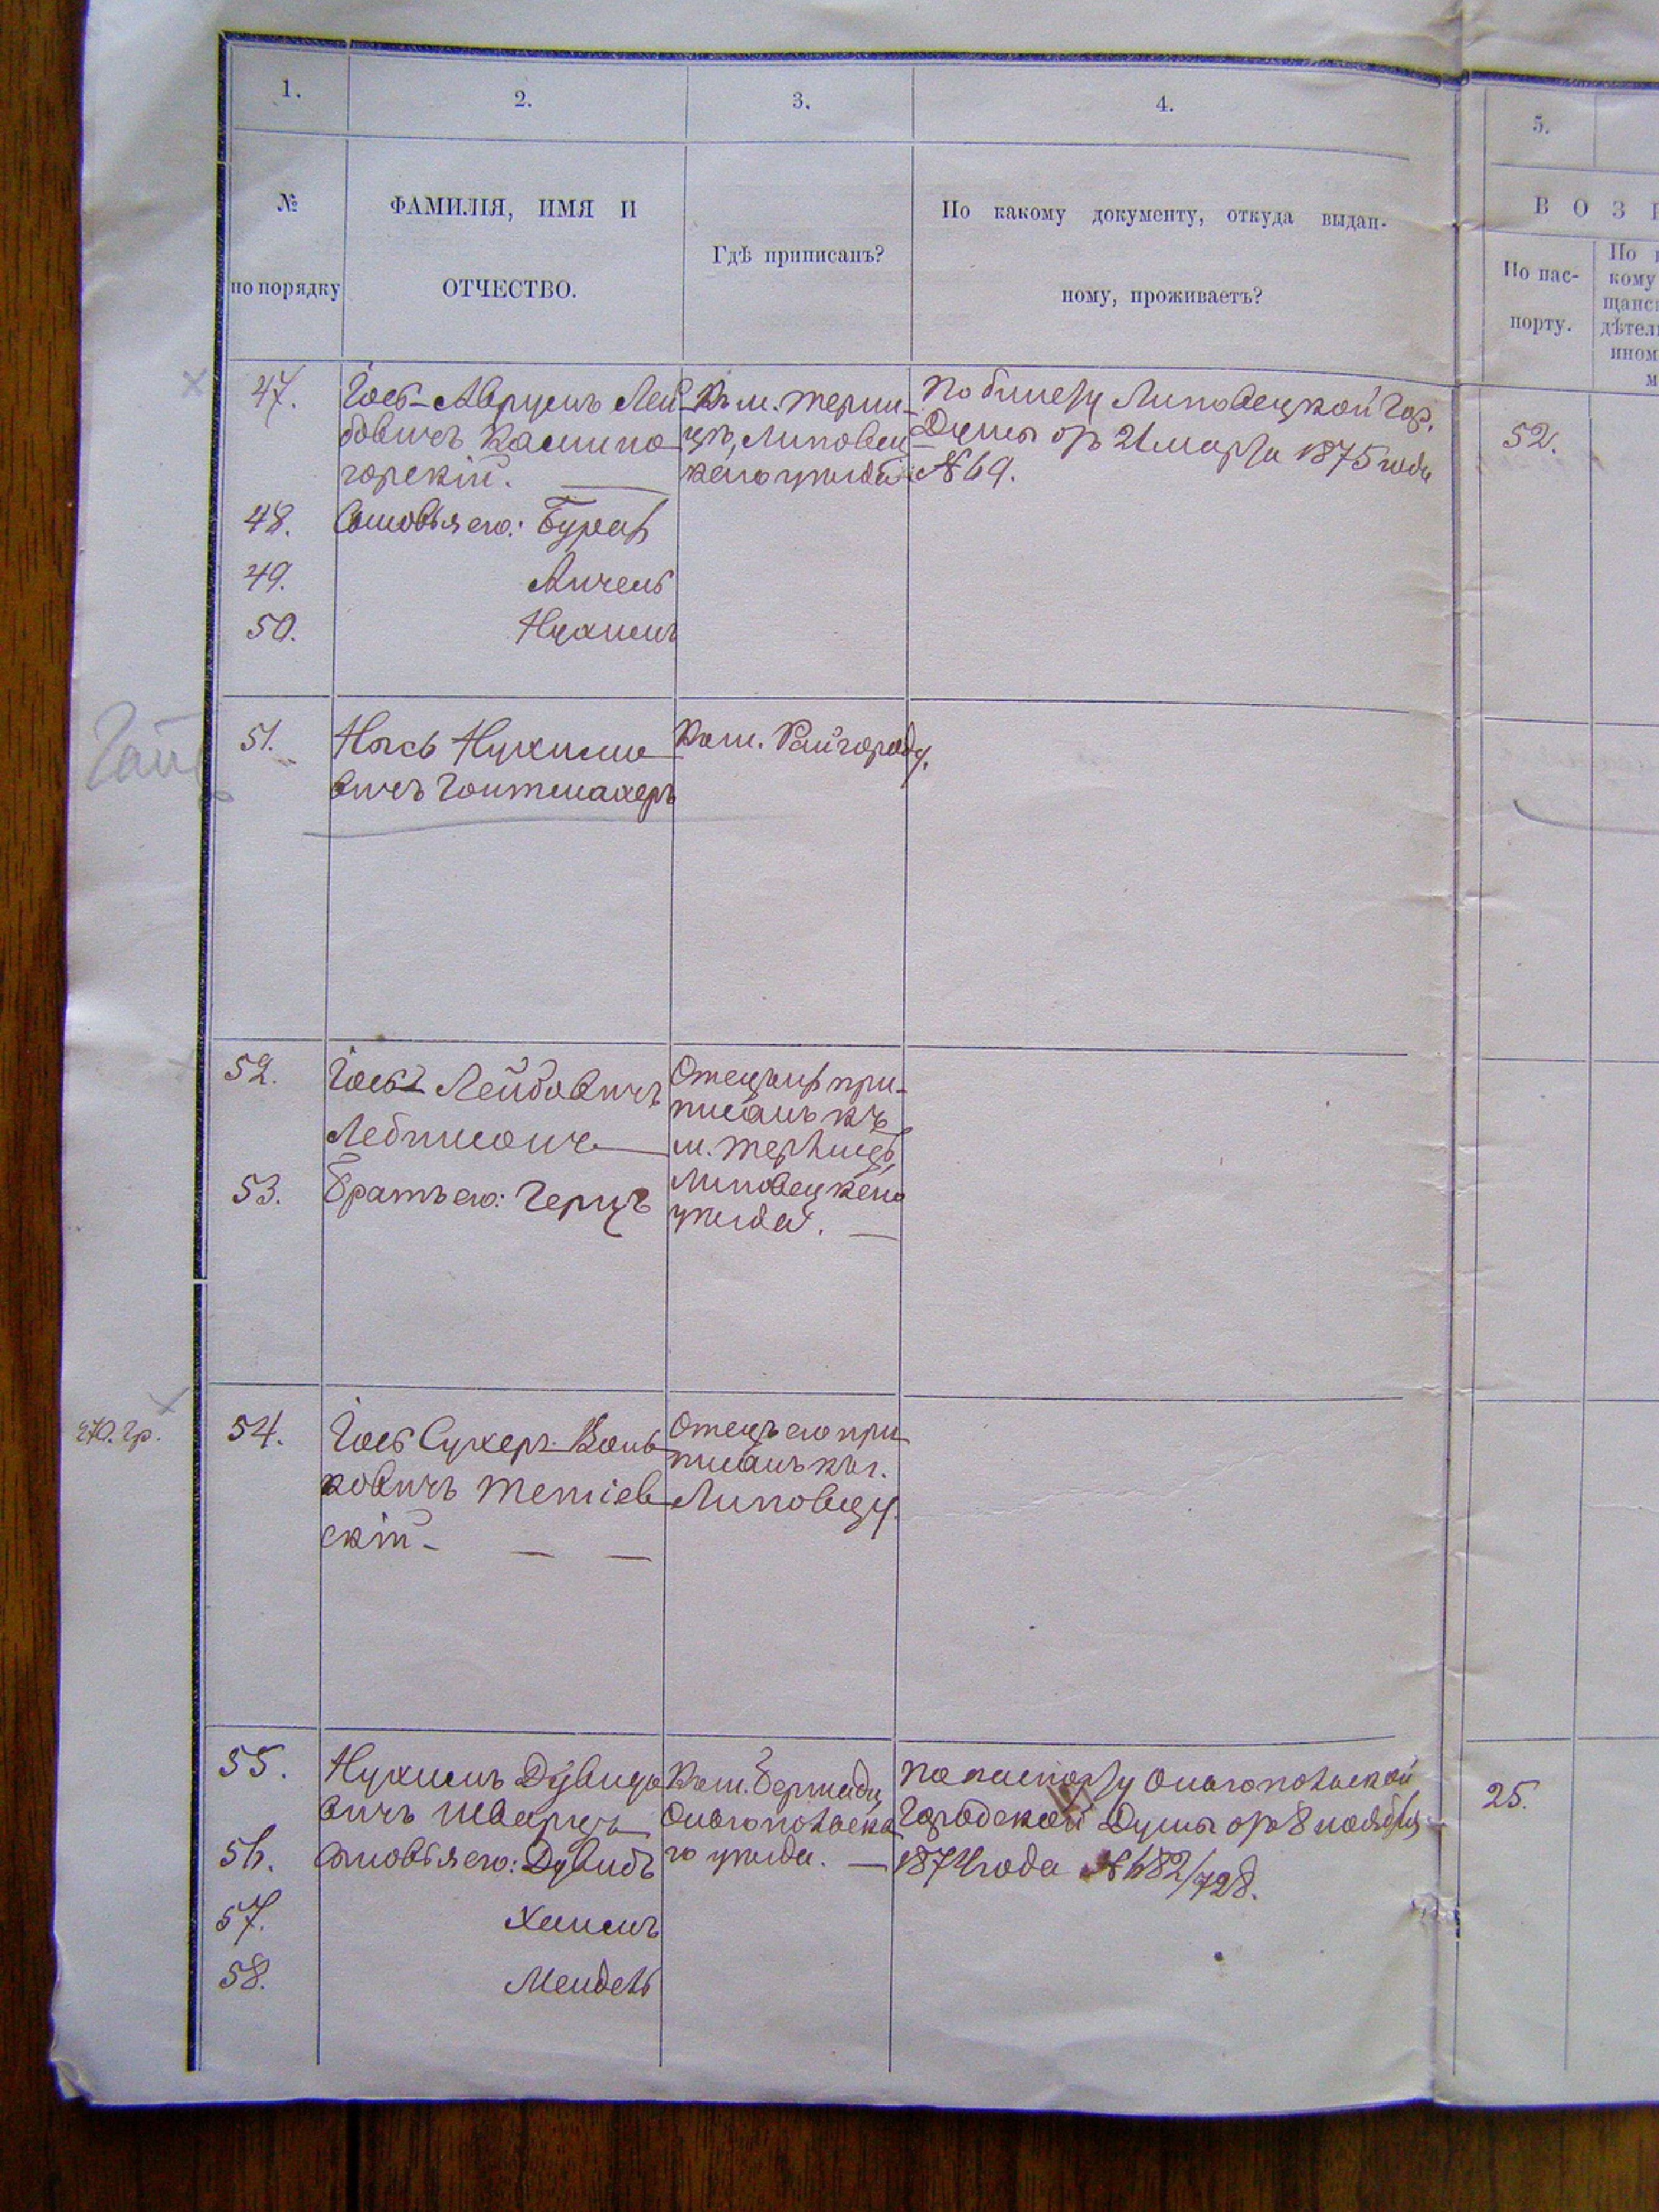 1. 2. 3. 4. 5.
№ по порядку
ФАМИЛІЯ, ИМЯ И
ОТЧЕСТВО.
Гдѣ приписанъ?
По какому документу, откуда выдан-
ному, проживаетъ?
В О З
По пас-
порту.
По
кому
щанс
дѣтел
ином
м
47. Іось-Аврумъ Лей
бовичъ Камино
горскій.
Къ м. Терли-
цѣ, Липовец
каго уѣзда
По билету Липовецкой Гор.
Думы отъ 21 марта 1875 года
№ 69.
52.
48. Сыновья его: Бухатъ
49. Анчель
50. Нухимъ
Гайт
51. Нысь Нухимо
вичъ Гойтмахеръ
Къ м. Райгороду.
52. Іось Лейбовичъ
53. Братъ его: Герцъ
Отецъ ихъ при-
писанъ къ
м. Терлицѣ,
Липовецкаго
уѣзда.
270. Гр.
54. Іось Сухеръ Воль
ковичъ Тетіев
скій
Отецъ его при
писанъ къ г.
Липовцу.
55. Нухимъ Дувидо
вичъ Шварцъ
Къ м. Бершади,
Ольгопольска
го уѣзда.
По паспорту Ольгопольской
Городской Думы отъ 8 ноября
1874 года № 682/728.
25.
56. Сыновья его: Дувидъ
57. Хаимъ
58. Мендель